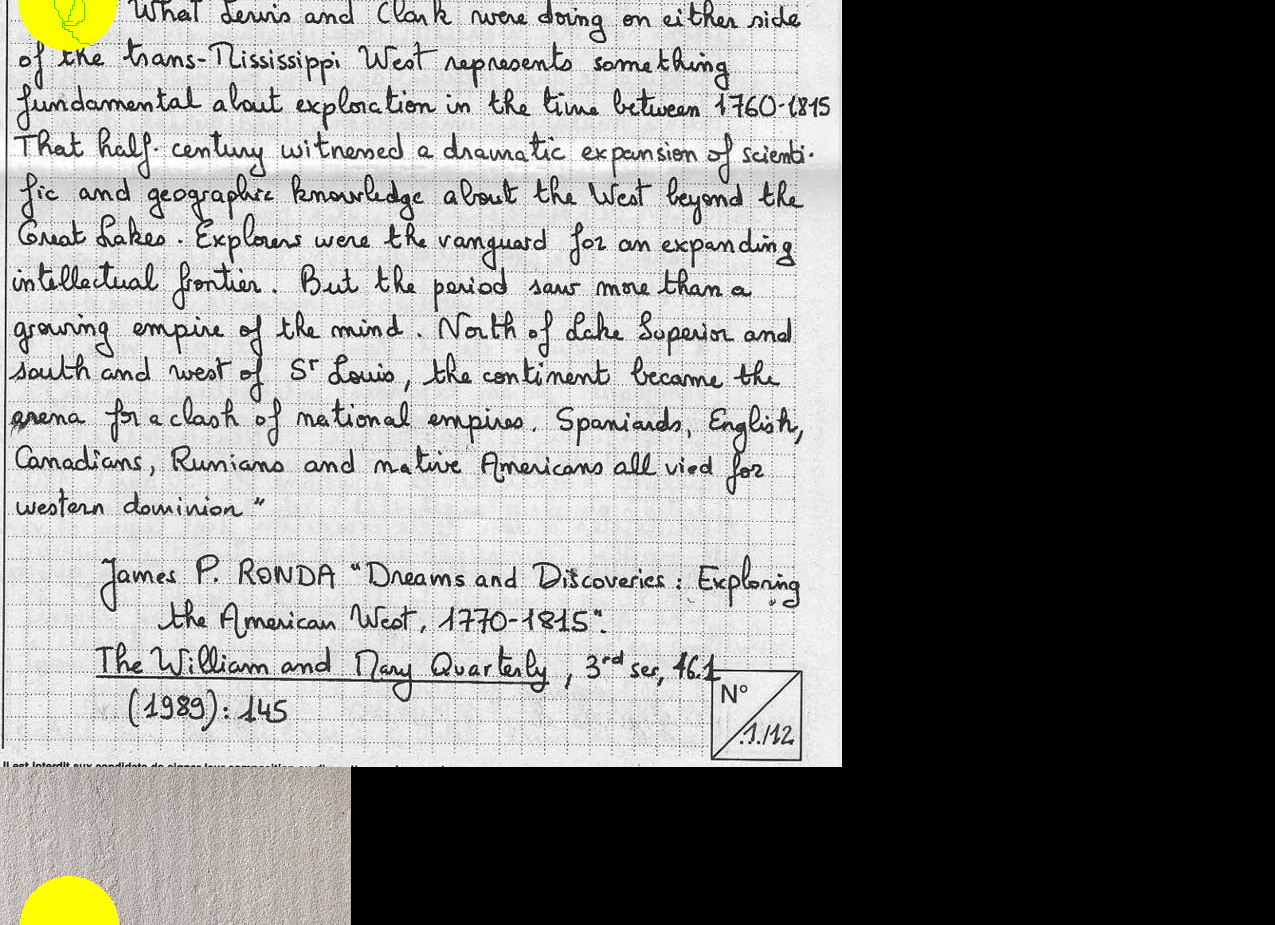 What Lewis and Clark were doing on either side
of the trans-Mississippi West represents something
fundamental about exploration in the time between 1760-1815
That half-century witnessed a dramatic expansion of scienti-
fic and geographic knowledge about the West beyond the
Great Lakes. Explorers were the vanguard for an expanding
intellectual frontier. But the period saw more than a
growing empire of the mind. North of Lake Superior and
south and west of St Louis, the continent became the
arena for a clash of national empires. Spaniards, English,
Canadians, Russians and native Americans all vied for
western dominion"
James P. RONDA "Dreams and Discoveries : Exploring
the American West, 1770-1815".
The William and Mary Quarterly, 3rd ser, 46.1
(1989): 145
N°
1./12
Il est interdit aux candidats de signer leur composition ou